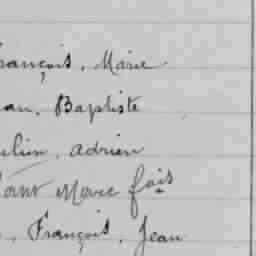 rançois, Marie
an, Baptiste
ulien, adrien
Marc fois
, François, Jean